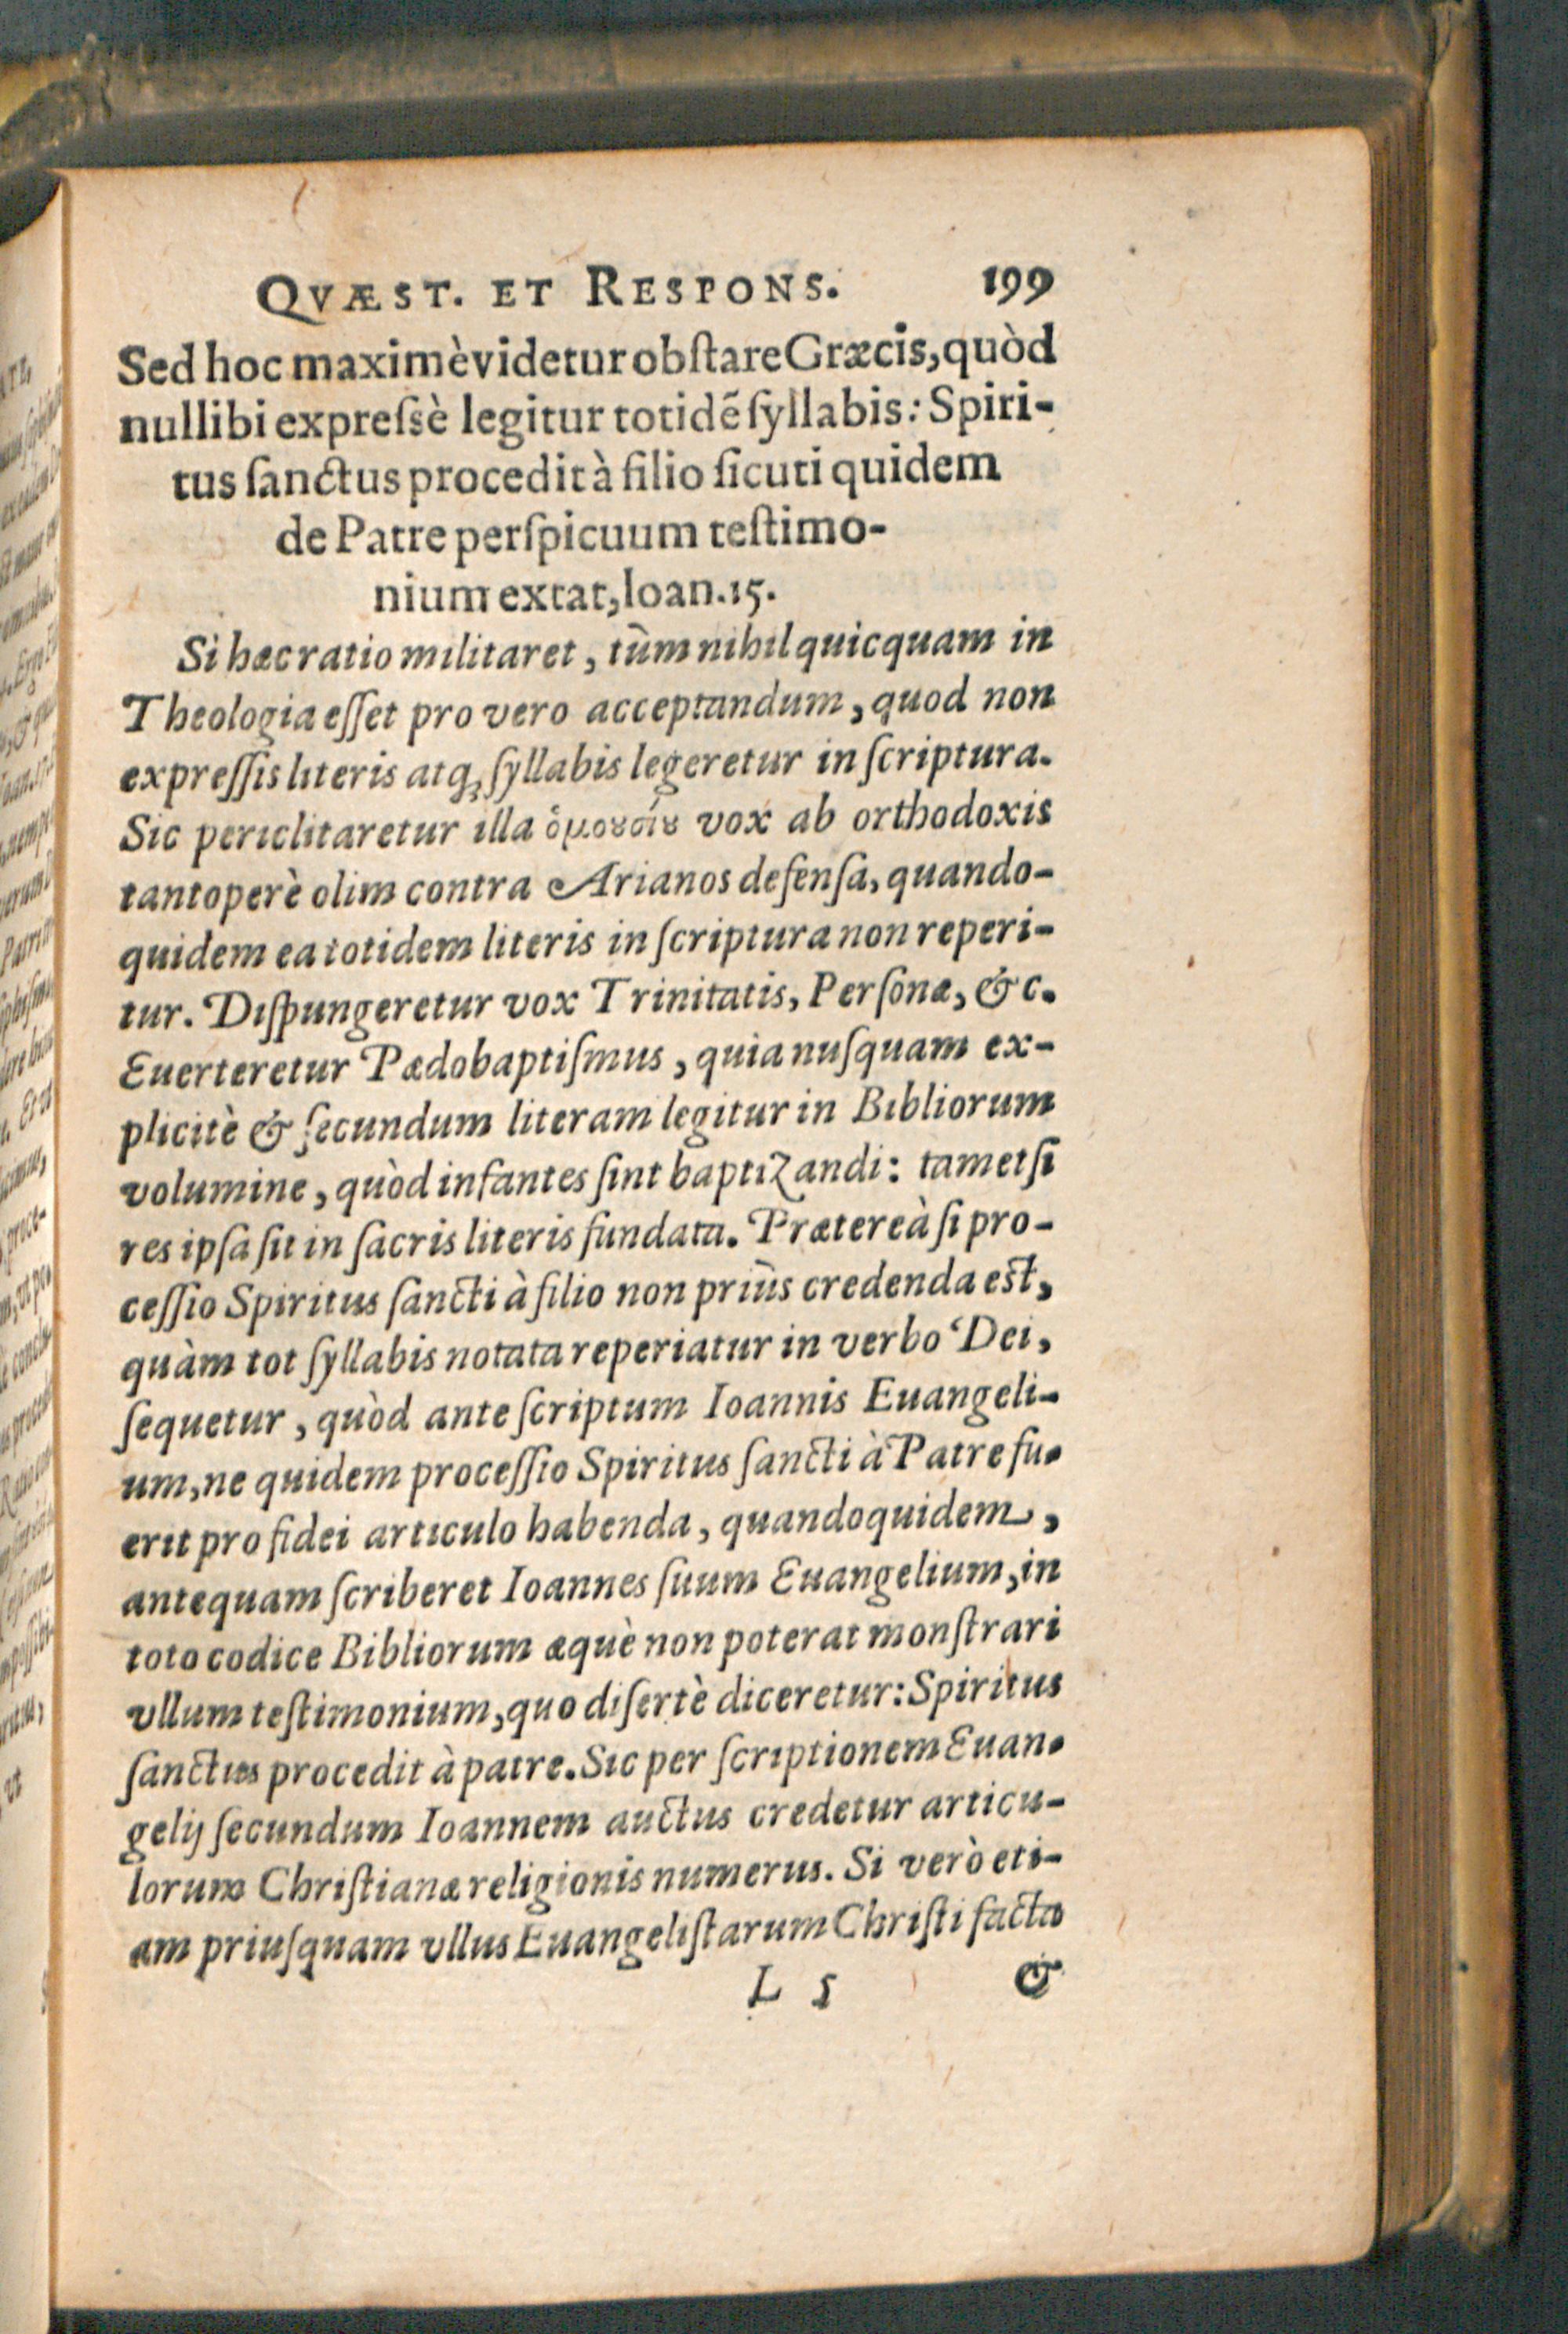 QVÆST. ET RESPONS. 199
Sed hoc maximè videtur obſtare Græcis, quòd
nullibi expreſsè legitur totidẽ ſyllabis: Spiri-
tus ſanctus procedit à filio ſicuti quidem
de Patre perſpicuum teſtimo-
nium extat, Ioan. 15.
Si hæc ratio militaret, tùm nihil quicquam in
Theologia eſſet pro vero acceptandum, quod non
expreſſis literis atq; ſyllabis legeretur in ſcriptura.
Sic periclitaretur illa ὁμουσίου vox ab orthodoxis
tantoperè olim contra Arianos defenſa, quando-
quidem ea totidem literis in ſcriptura non reperi-
tur. Diſpungeretur vox Trinitatis, Perſonæ, &c.
Euerteretur Pædobaptiſmus, quia nuſquam ex-
plicitè & ſecundum literam legitur in Bibliorum
volumine, quòd infantes ſint baptizandi: tametſi
res ipſa ſit in ſacris literis fundata. Prætereà ſi pro-
ceſſio Spiritus ſancti à filio non priùs credenda eſt,
quàm tot ſyllabis notata reperiatur in verbo Dei,
ſequetur, quòd ante ſcriptum Ioannis Euangeli-
um, ne quidem proceſſio Spiritus ſancti à Patre fu-
erit pro fidei articulo habenda, quandoquidem,
antequam ſcriberet Ioannes ſuum Euangelium, in
toto codice Bibliorum æquè non poterat monſtrari
vllum teſtimonium, quo diſertè diceretur: Spiritus
ſanctus procedit à patre. Sic per ſcriptionem Euan-
gelij ſecundum Ioannem auctus credetur articu-
lorum Chriſtianæ religionis numerus. Si verò eti-
am priuſquam vllus Euangeliſtarum Chriſti facta
L 5 &